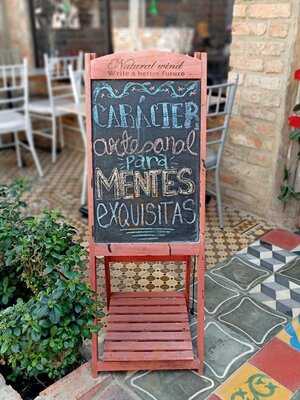 Natural wind
Write a better future
CARÁCTER
artesanal
para
MENTES
EXQUISITAS